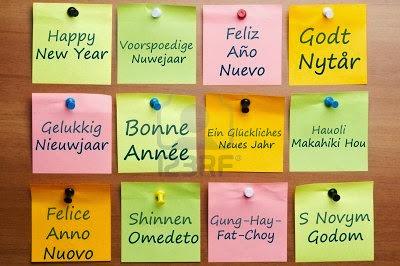 Happy
New Year
Voorspoedige
Nuwejaar
Feliz
Año
Nuevo
Godt
Nytår
Gelukkig
Nieuwjaar
Bonne
Année
Ein Glückliches
Neues Jahr
Hauoli
Makahiki Hou
Felice
Anno
Nuovo
Shinnen
Omedeto
Gung-Hay-
Fat-Choy
S Novym
Godom
123RF